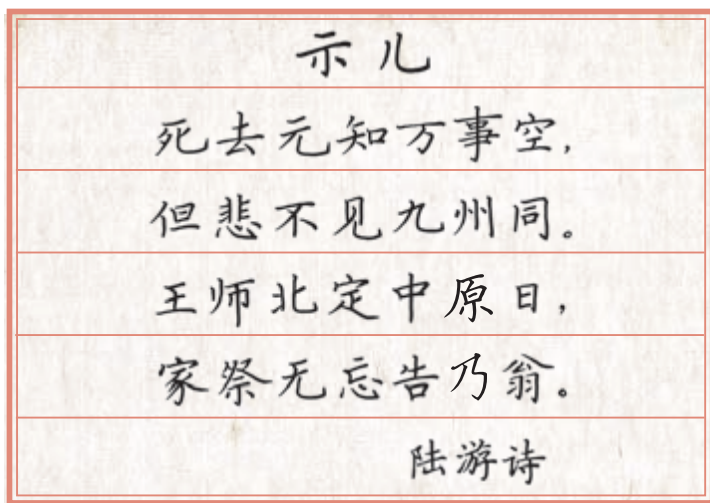 示儿
死去元知万事空,
但悲不见九州同。
王师北定中原日,
家祭无忘告乃翁。
陆游诗